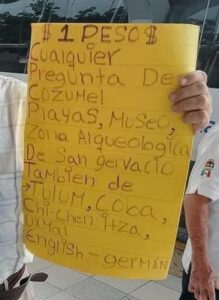 $ 1 PESO $
Cualquier
Pregunta De
Cozumel
Playas, Museo,
Zona Arqueologica
De San gervacio
Tambien de
→Tulum, Coba,
Chi-chen itza,
Uxmal
English-german